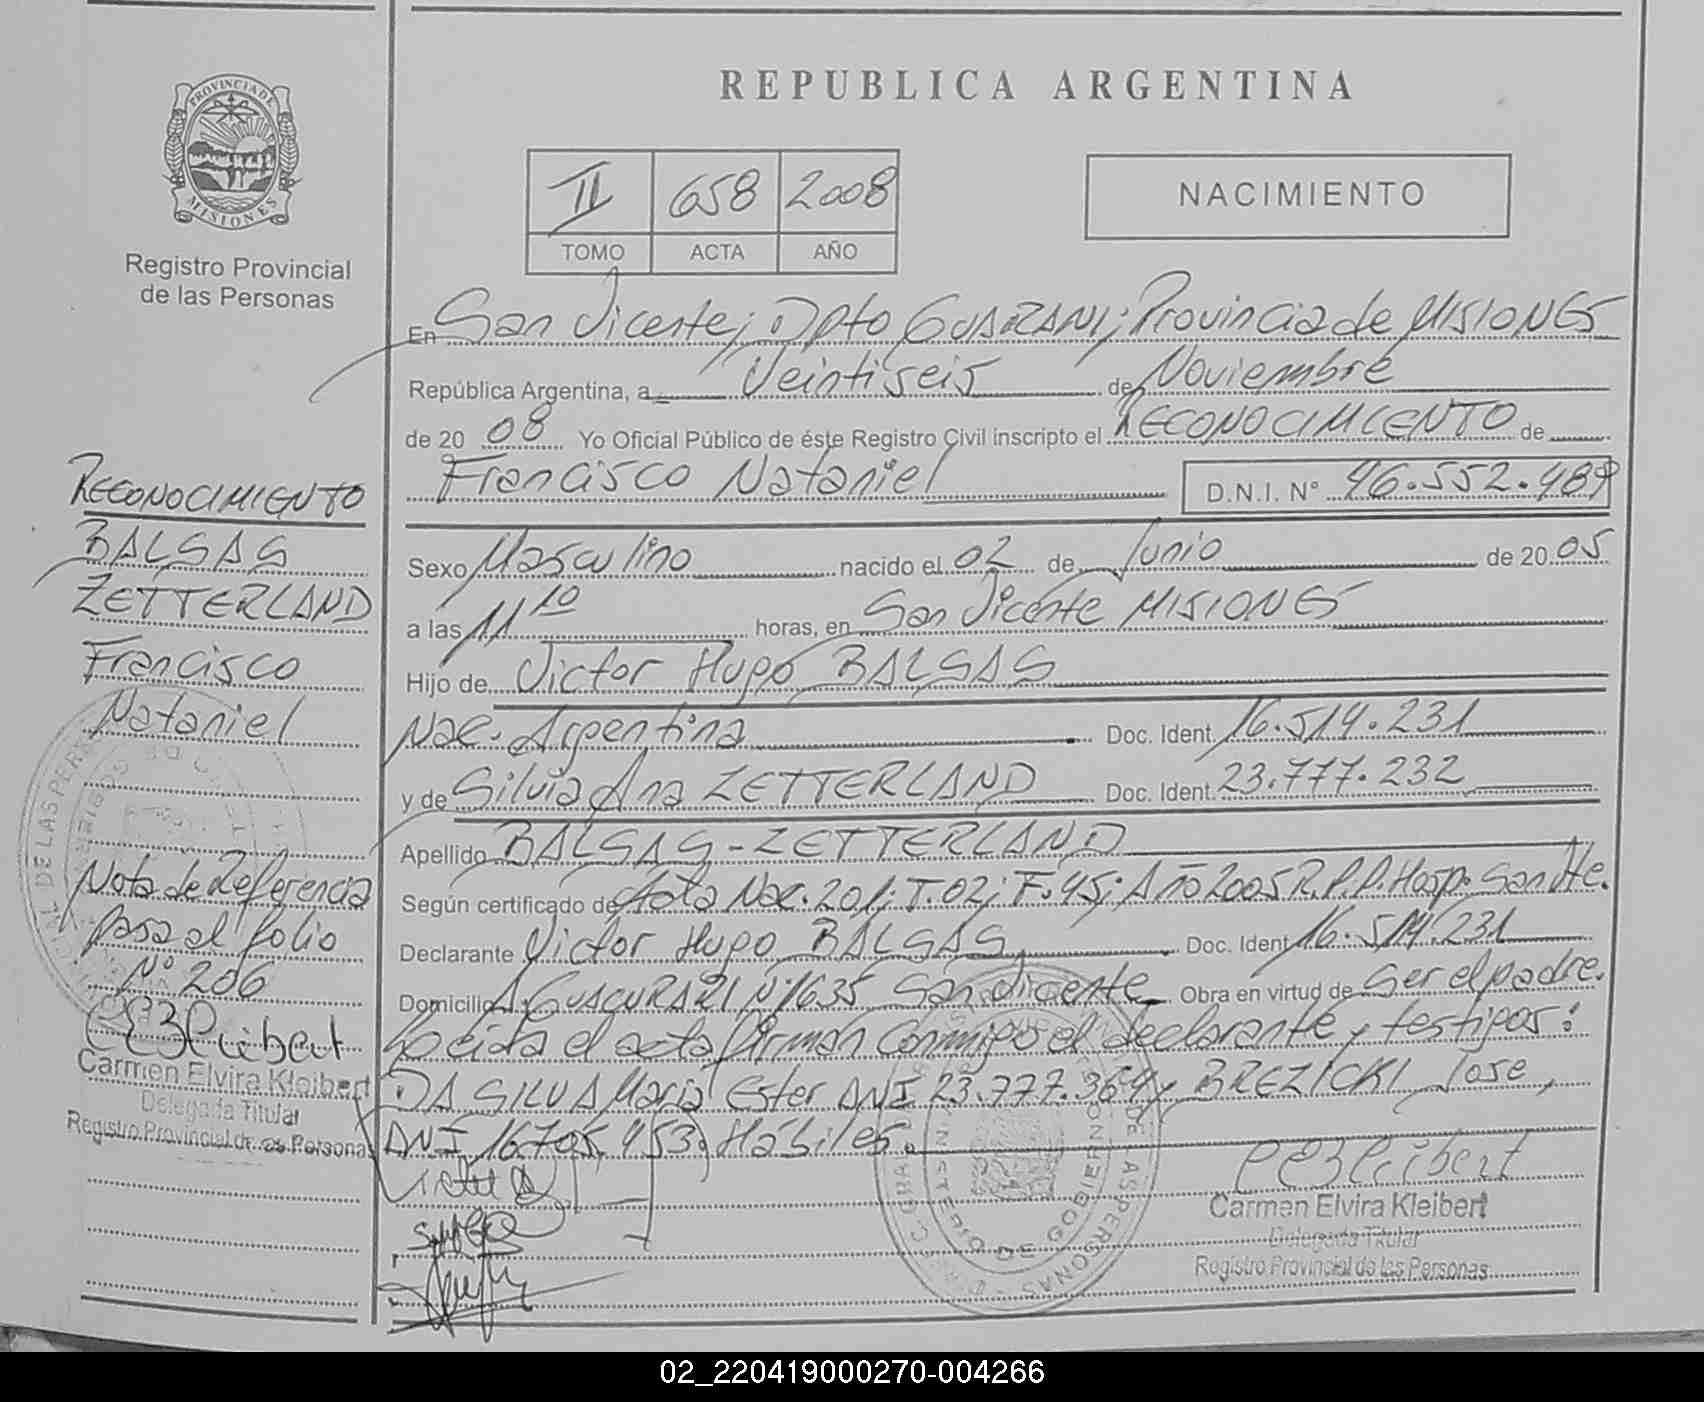 PROVINCIA DE
MISIONES
Registro Provincial
de las Personas
RECONOCIMIENTO
BALSAS
ZETTERLAND
Francisco
Nataniel
Nota de Referencia
pasa al folio
Nº 206
Carmen Elvira Kleibert
Delegada Titular
Registro Provincial de las Personas
REPUBLICA ARGENTINA
II 658 2008
TOMO ACTA AÑO
NACIMIENTO
En San Vicente; Dpto GUARANI; Provincia de MISIONES
República Argentina, a Veintiseis de Noviembre
de 20 08 Yo Oficial Público de éste Registro Civil inscripto el RECONOCIMIENTO de
Francisco Nataniel D.N.I. Nº 46.552.489
Sexo Masculino nacido el 02 de Junio de 20 05
a las 11 10 horas, en San Vicente MISIONES
Hijo de Victor Hugo BALSAS
Nac. Argentina Doc. Ident. 16.514.231
y de Silvia Ana ZETTERLAND Doc. Ident. 23.777.232
Apellido BALSAS-ZETTERLAND
Según certificado de Acta Nac. 201; T. 02; F. 45; Año 2005 R.P.P. Hosp. San Vte.
Declarante Victor Hugo BALSAS Doc. Ident 16.514.231
Domicilio AGUACURARI Nº 1635 San Vicente Obra en virtud de ser el padre.
Leida el acta firman conmigo el declarante y testigos:
DA SILVA Maria Ester DNI 23.777.364 y BREZICKI Jose,
DNI 16.705.453; Hábiles.
Carmen Elvira Kleibert
Delegada Titular
Registro Provincial de las Personas
02_220419000270-004266